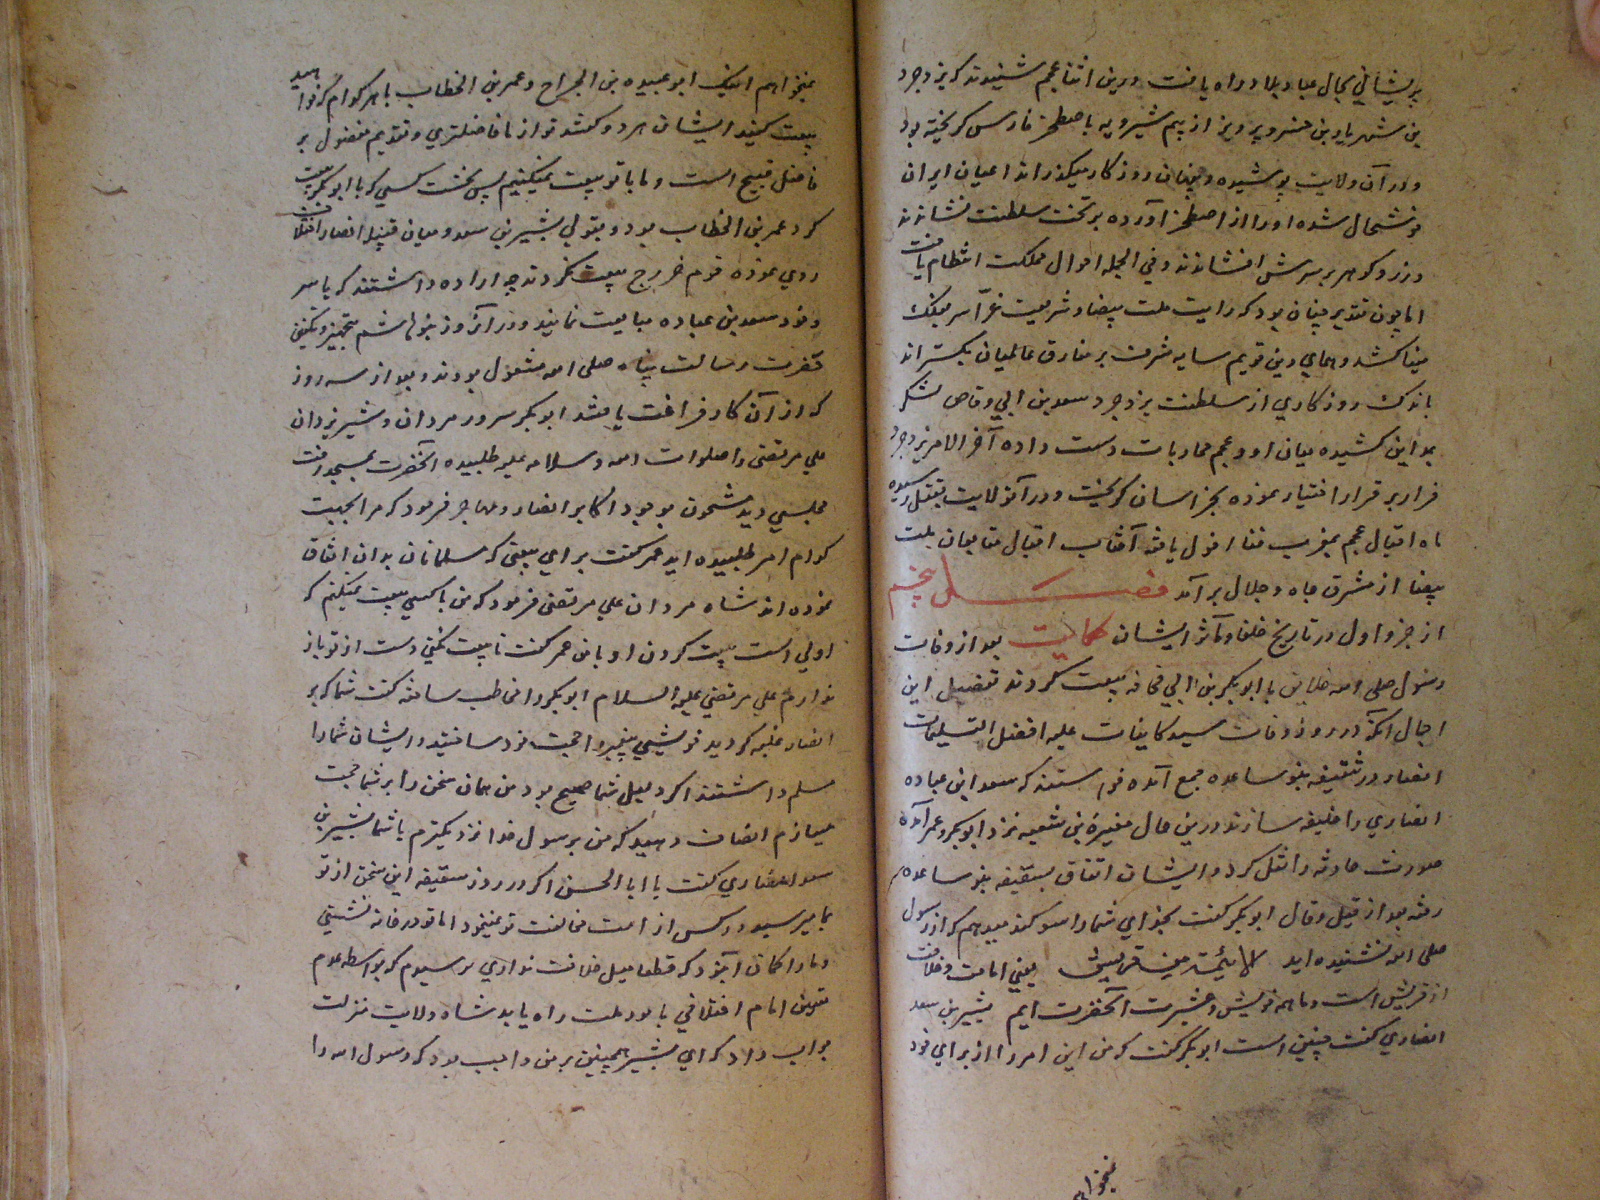 پریشانی بحال عباد بلاد راه یافت درین اثنا عجم شنیدند که یزدجرد
بن شهریار بن خسرو پرویز از بیم شیرویه باصطخر فارس کریخته بود
و در آن ولایت پوشیده و پنهان روزکار میکذراند اعیان ایران
خوشحال شده او را از اصطخر آورده بر تخت سلطنت نشاندند
و زر و کوهر بر سرش افشاندند و فی الجمله احوال مملکت انتظام یافت
اما چون تقدیر چنان بود که رایت ملت بیضا و شریعت غرا سر بفلک
مینا کشد و همای دین قویم سایه شرف بر مفارق عالمیان بکستراند
باندک روزکاری از سلطنت یزدجرد سعد بن ابی وقاص لشکر
بمداین کشیده میان او و عجم محاربات دست داده آخر الامر یزدجرد
فرار بر قرار اختیار نموده بخراسان کریخت و در آنولایت بقتل رسیده
ماه اقبال عجم بمغرب فنا افول یافته آفتاب اقبال متابعان ملت
بیضا از مشرق جاه و جلال برآمد فصل پنجم
از جزو اول در تاریخ خلفا و مآثر ایشان حکایت بعد از وفات
رسول صلی الله خلایق با ابوبکر بن ابی قحافه بیعت کردند تفصیل این
اجمال آنکه در روز وفات سید کاینات علیه افضل التسلیمات
انصار در ثقیفه بنو ساعده جمع آمده خواستند که سعد ابن عباده
انصاری را خلیفه سازند درین حال مغیرة بن شعبه نزد ابوبکر و عمر آمده
صورت حادثه را نقل کرد و ایشان اتفاق بسقیفه بنو ساعده
رفته بعد از قیل و قال ابوبکر کفت بخدای شما را سوکند میدهم که از رسول
صلی الله نشنیده اید الائمة من قریش یعنی امامت و خلافت
از قریش است و ما همه خویش و عشیرت آنحضرت ایم بشیر بن سعد
انصاری کفت چنین است ابوبکر کفت که من این امر را از برای خود
نمیخواهم
نمیخواهم اینک ابو عبیده بن الجراح و عمر بن الخطاب با هر کدام که خواهید
بیعت کنید ایشان هر دو کفتند تو از ما فاضلتری و تقدیم مفضول بر
فاضل قبیح است و ما با تو بیعت میکنیم پس نخست کسی که با ابوبکر بیعت
کرد عمر بن الخطاب بود و بقولی بشیر بن سعد و میان قبیله انصار اختلاف
روی نموده قوم خزرج بیعت نکردند چه اراده داشتند که با سر
خود سعد بن عباده مبایعت نمایند و در آنروز بنو هاشم بتجهیز و تکفین
حضرت رسالت پناه صلی الله مشغول بودند و بعد از سه روز
که از آن کار فراغت یافتند ابوبکر سرور مردان و شیر یزدان
علی مرتضی را صلوات الله و سلامه علیه طلبیده آنحضرت بمسجد رفت
مجلسی دید مشحون بوجود اکابر انصار و مهاجر فرمود که مرا بجهت
کدام امر طلبیده اید عمر کفت برای بیعتی که مسلمانان بدان اتفاق
نموده اند شاه مردان علی مرتضی فرمود که من با کسی بیعت نمیکنم که
اولی است بیعت کردن او با من عمر کفت تا بیعت نکنی دست از تو باز
ندارم علی مرتضی علیه السلام ابوبکر را مخاطب ساخته کفت شما که بر
انصار غلبه کردید خویشی پیغمبر را حجت خود ساختید و ایشان شما را
مسلم داشتند اکر دلیل شما صحیح بود من همان سخن را بر شما حجت
میسازم انصاف دهید که من برسول خدا نزدیکترم یا شما بشیر بن
سعد انصاری کفت یا ابا الحسن اکر در روز سقیفه این سخن از تو
بما میرسید کس از امت مخالفت تو نمینمود اما تو در خانه نشستی
و ما را کمان آنبود که قطعا میل خلافت نداری ترسیدیم که بواسطه عدم
تعیین امام اختلافی بامور ملت راه یابد شاه ولایت منزلت
جواب داد که ای بشیر همچنین بر من واجب بود که رسول الله را